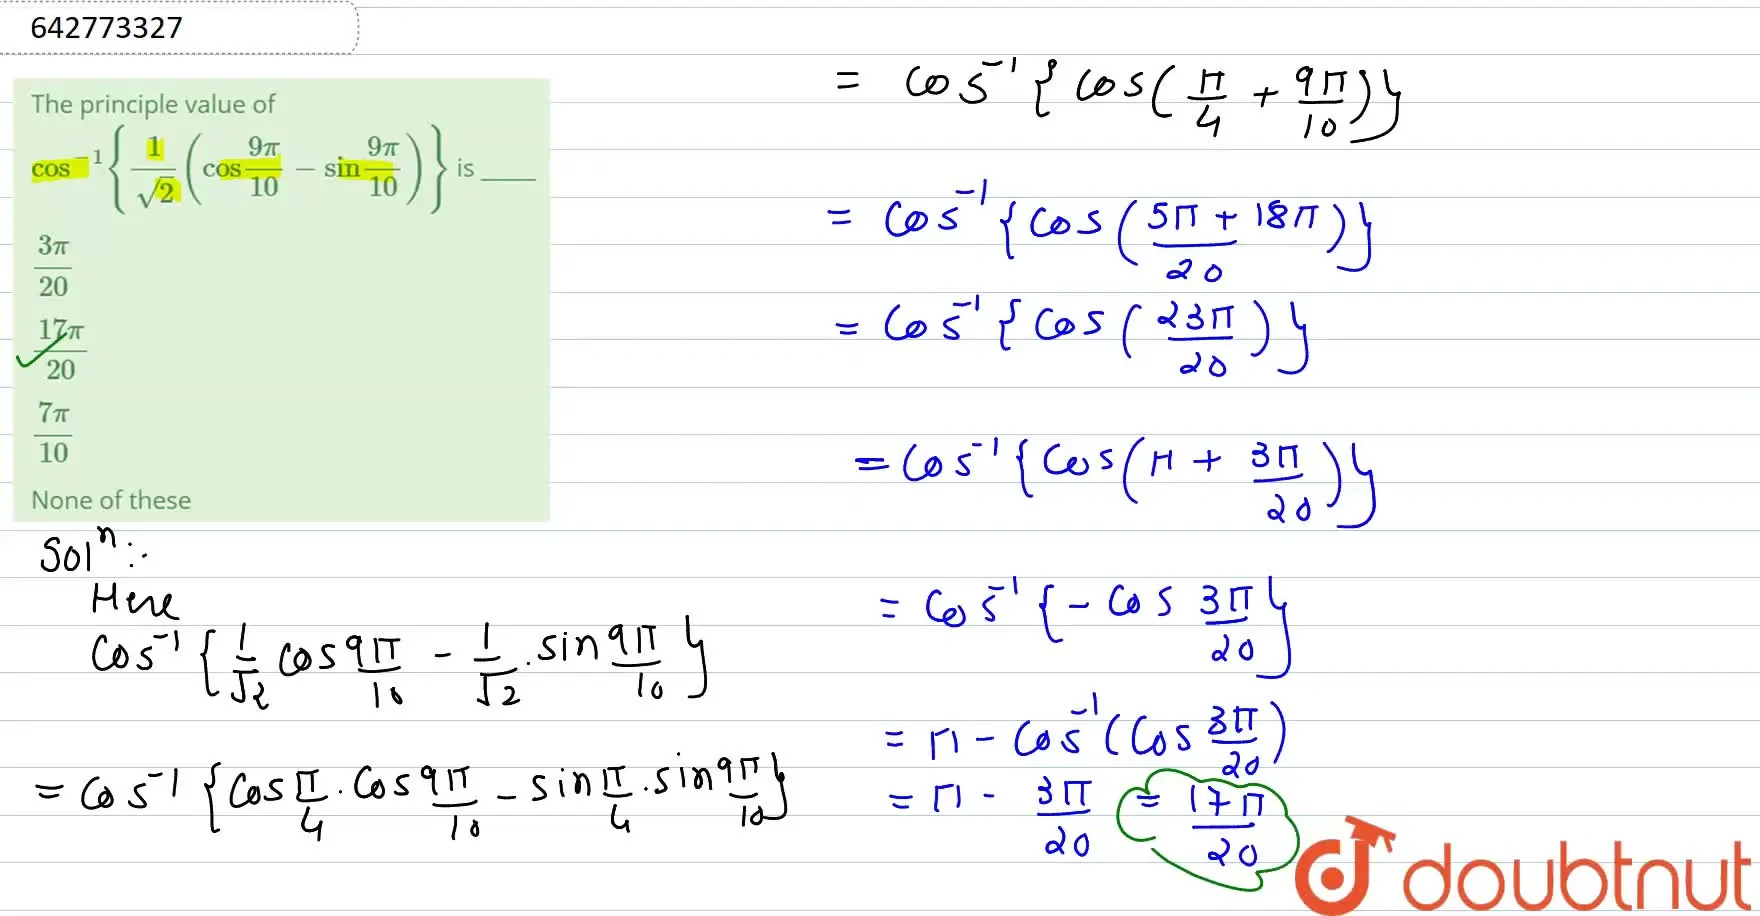 642773327
The principle value of
cos⁻¹{1/√2(cos 9π/10 − sin 9π/10)} is ____
3π/20
17π/20
7π/10
None of these
Solⁿ:-
Here
Cos⁻¹{1/√2 cos 9π/10 - 1/√2 . sin 9π/10}
= Cos⁻¹{Cos π/4 . Cos 9π/10 - sin π/4 . sin 9π/10}
= Cos⁻¹{Cos(π/4 + 9π/10)}
= Cos⁻¹{Cos(5π + 18π/20)}
= Cos⁻¹{Cos(23π/20)}
= Cos⁻¹{Cos(π + 3π/20)}
= Cos⁻¹{- Cos 3π/20}
= π - Cos⁻¹(Cos 3π/20)
= π - 3π/20 = 17π/20
doubtnut